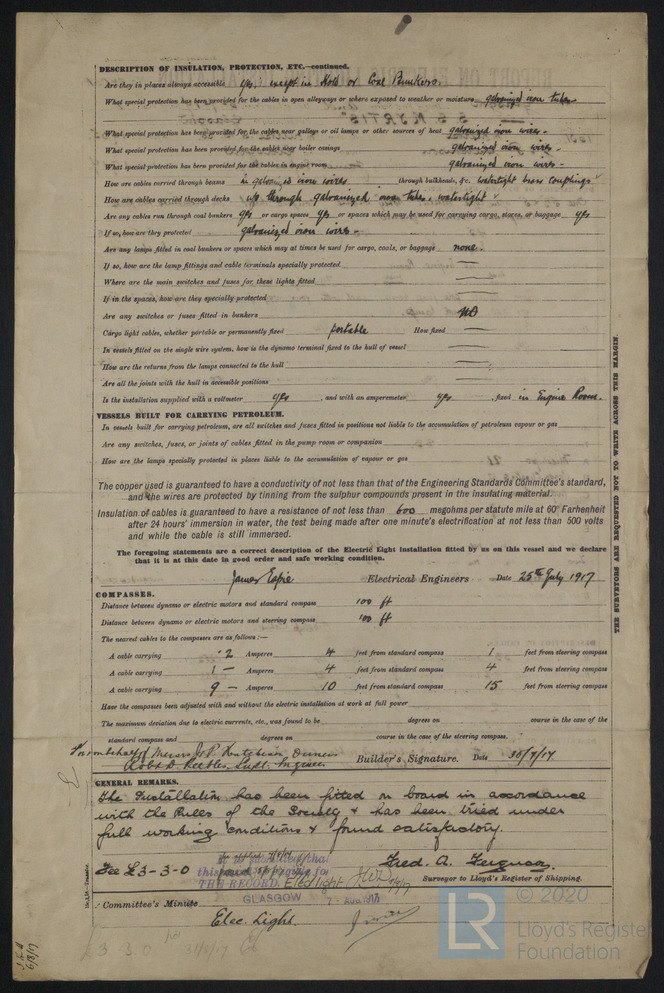 DESCRIPTION OF INSULATION, PROTECTION, ETC.—continued.
Are they in places always accessible yes, except in Hold or Coal Bunkers.
What special protection has been provided for the cables in open alleyways or where exposed to weather or moisture galvanized iron tubes
What special protection has been provided for the cables near galleys or oil lamps or other sources of heat galvanized iron wires -
What special protection has been provided for the cables near boiler casings galvanized iron wires -
What special protection has been provided for the cables in engine room galvanized iron wires -
How are cables carried through beams in galvanized iron wires through bulkheads, &c. watertight brass couplings
How are cables carried through decks through galvanized iron tubes, watertight
Are any cables run through coal bunkers yes or cargo spaces yes or spaces which may be used for carrying cargo, stores, or baggage yes
If so, how are they protected galvanized iron wires -
Are any lamps fitted in coal bunkers or spaces which may at times be used for cargo, coals, or baggage none -
If so, how are the lamp fittings and cable terminals specially protected
Where are the main switches and fuses for these lights fitted
If in the spaces, how are they specially protected
Are any switches or fuses fitted in bunkers no
Cargo light cables, whether portable or permanently fixed portable How fixed
In vessels fitted on the single wire system, how is the dynamo terminal fixed to the hull of vessel
How are the returns from the lamps connected to the hull
Are all the joints with the hull in accessible positions
Is the installation supplied with a voltmeter yes, and with an amperemeter yes, fixed in Engine Room.
VESSELS BUILT FOR CARRYING PETROLEUM.
In vessels built for carrying petroleum, are all switches and fuses fitted in positions not liable to the accumulation of petroleum vapour or gas
Are any switches, fuses, or joints of cables fitted in the pump room or companion
How are the lamps specially protected in places liable to the accumulation of vapour or gas
The copper used is guaranteed to have a conductivity of not less than that of the Engineering Standards Committee's standard,
and the wires are protected by tinning from the sulphur compounds present in the insulating material.
Insulation of cables is guaranteed to have a resistance of not less than 600 megohms per statute mile at 60° Farhenheit
after 24 hours' immersion in water, the test being made after one minute's electrification at not less than 500 volts
and while the cable is still immersed.
The foregoing statements are a correct description of the Electric Light installation fitted by us on this vessel and we declare
that it is at this date in good order and safe working condition.
James Espie Electrical Engineers Date 25th July 1917
COMPASSES.
Distance between dynamo or electric motors and standard compass 100 ft
Distance between dynamo or electric motors and steering compass 100 ft
The nearest cables to the compasses are as follows:—
A cable carrying .2 Amperes 4 feet from standard compass 1 feet from steering compass
A cable carrying 1 — Amperes 4 feet from standard compass 4 feet from steering compass
A cable carrying 9 — Amperes 10 feet from standard compass 15 feet from steering compass
Have the compasses been adjusted with and without the electric installation at work at full power
The maximum deviation due to electric currents, etc., was found to be degrees on course in the case of the
standard compass and degrees on course in the case of the steering compass.
Builder's Signature. Date 30/7/17
GENERAL REMARKS.
The Installation has been fitted on board in accordance
with the Rules of the Society & has been tried under
full working conditions & found satisfactory.
Fee £3-3-0
THE RECORD. Elec light
Fred. A. Ferguson
Surveyor to Lloyd's Register of Shipping.
GLASGOW 7 - AUG 1917
Committee's Minute
Elec. Light.
THE SURVEYORS ARE REQUESTED NOT TO WRITE ACROSS THIS MARGIN.
© 2020
LR
Lloyd's Register
Foundation